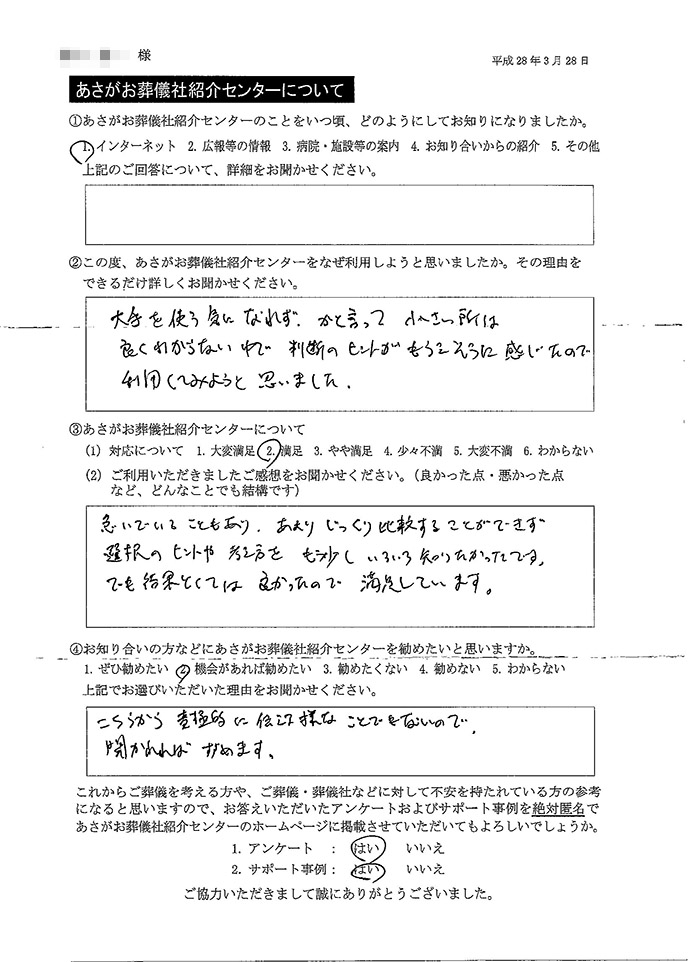 様
平成28年3月28日
あさがお葬儀社紹介センターについて
①あさがお葬儀社紹介センターのことをいつ頃、どのようにしてお知りになりましたか。
1. インターネット 2. 広報等の情報 3. 病院・施設等の案内 4. お知り合いからの紹介 5. その他
上記のご回答について、詳細をお聞かせください。
②この度、あさがお葬儀社紹介センターをなぜ利用しようと思いましたか。その理由を
できるだけ詳しくお聞かせください。
大手を使う気になれず、かと言って 小さい所は
良くわからないので 判断のヒントがもらえそうに 感じたので
利用してみようと 思いました。
③あさがお葬儀社紹介センターについて
(1) 対応について 1. 大変満足 2. 満足 3. やや満足 4. 少々不満 5. 大変不満 6. わからない
(2) ご利用いただきましたご感想をお聞かせください。(良かった点・悪かった点
など、どんなことでも結構です)
急いでいることもあり、あまりじっくり比較することができず
選択のヒントや 考え方を もう少し いろいろ 知りたかったです。
でも結果としては 良かったので 満足しています。
④お知り合いの方などにあさがお葬儀社紹介センターを勧めたいと思いますか。
1. ぜひ勧めたい 2. 機会があれば勧めたい 3. 勧めたくない 4. 勧めない 5. わからない
上記でお選びいただいた理由をお聞かせください。
こちらから 積極的に 伝える様な ことでもないので、
聞かれれば すすめます。
これからご葬儀を考える方や、ご葬儀・葬儀社などに対して不安を持たれている方の参考
になると思いますので、お答えいただいたアンケートおよびサポート事例を絶対匿名で
あさがお葬儀社紹介センターのホームページに掲載させていただいてもよろしいでしょうか。
1. アンケート : はい いいえ
2. サポート事例: はい いいえ
ご協力いただきまして誠にありがとうございました。